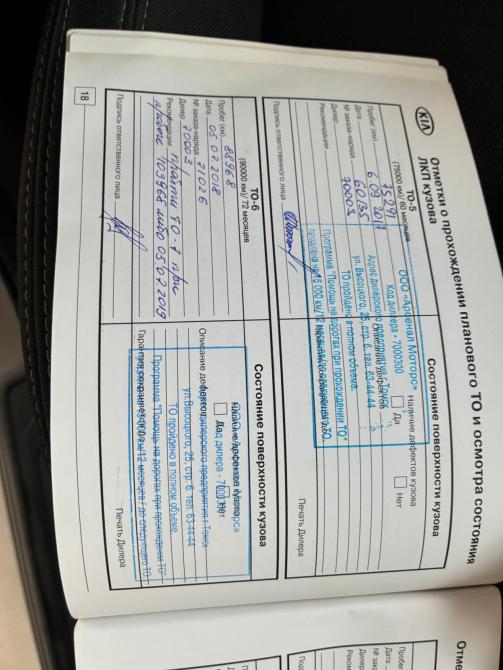 KIA
Отметки о прохождении планового ТО и осмотра состояния
ЛКП кузова
ТО-5
(75000 км)/ 60 месяцев
Пробег (км) 75291
Дата 6.09.2017
№ заказа-наряда 60135
Дилер 70003
Рекомендации
Подпись ответственного лица
Состояние поверхности кузова
Наличие дефектов кузова
Да
Нет
Описание дефектов
Печать Дилера
ООО «Арсенал Моторс»
Код дилера - 7000300
Адрес дилерского предприятия г.Томск
ул. Высоцкого, 25, стр. 6, тел. 63-44-44
ТО пройдено в полном объеме.
Программа "Помощь на дорогах при прохождении ТО"
продлена на 15 000 км/12 месяцев/до следующего ТО
ТО-6
(90000 км)/ 72 месяцев
Пробег (км) 88968
Дата 05.07.2018
№ заказа-наряда 71026
Дилер 70003
Рекомендации пройти ТО-7 при
пробеге 103968 либо 05.07.2019
Подпись ответственного лица
Состояние поверхности кузова
Наличие дефектов кузова
Да
Нет
Описание дефектов
Печать Дилера
Код дилера - 7000300
дилерского предприятия г.Томск
ул.Высоцкого, 25, стр. 6, тел. 63-44-44
ТО пройдено в полном объеме
Программа "Помощь на дорогах при прохождении ТО"
км/12 месяцев / до следующего ТО
18
Пробег
Дата
№ зак
Дилер
Реком